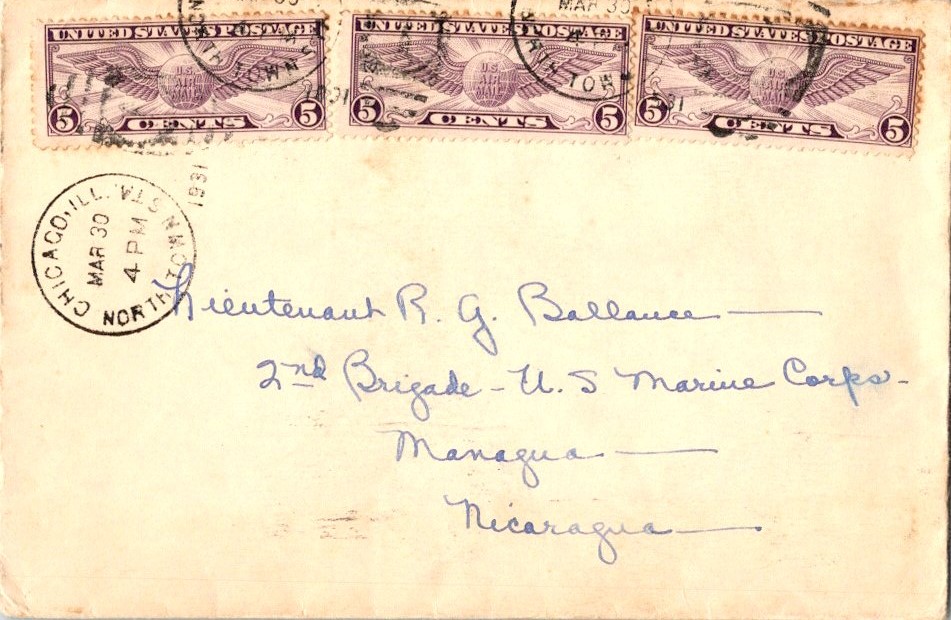 MAR 30
UNITED STATES POSTAGE
U.S.
AIR
MAIL
5 CENTS 5
NORTH TOWN
UNITED STATES POSTAGE
U.S.
AIR
MAIL
5 CENTS 5
MAR 30
NORTH TOWN
UNITED STATES POSTAGE
U.S.
AIR
MAIL
5 CENTS 5
1931
CHICAGO, ILL. NORTH TOWN STA.
MAR 30
4 PM
Lieutenant R. G. Ballance —
2nd Brigade - U. S Marine Corps -
Managua —
Nicaragua —